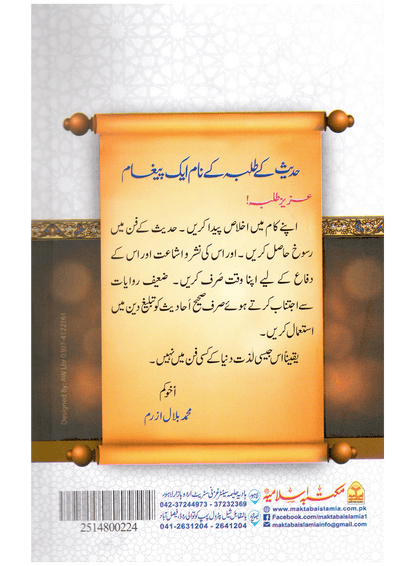 حدیث کے طلبہ کے نام ایک پیغام
عزیز طلبہ!
اپنے کام میں اخلاص پیدا کریں۔ حدیث کے فن میں
رسوخ حاصل کریں۔ اور اس کی نشر و اشاعت اور اس کے
دفاع کے لیے اپنا وقت صَرف کریں۔ ضعیف روایات
سے اجتناب کرتے ہوئے صرف صحیح اَحادیث کو تبلیغِ دین میں
استعمال کریں۔
یقیناً اس جیسی لذت دنیا کے کسی فن میں نہیں۔
اَخوکم
محمد بلال ازرم
Designed By: AW Lhr 0307-4122161
2514800224
لاہور
ہادیہ حلیمہ سینٹر غزنی سٹریٹ اردو بازار لاہور
042-37244973 - 37232369
041-2631204 - 2641204
مکتبہ اسلامیہ
www.maktabaislamia.com.pk
Facebook.com/maktabaislamia1
maktabaislamiainfo@gmail.com